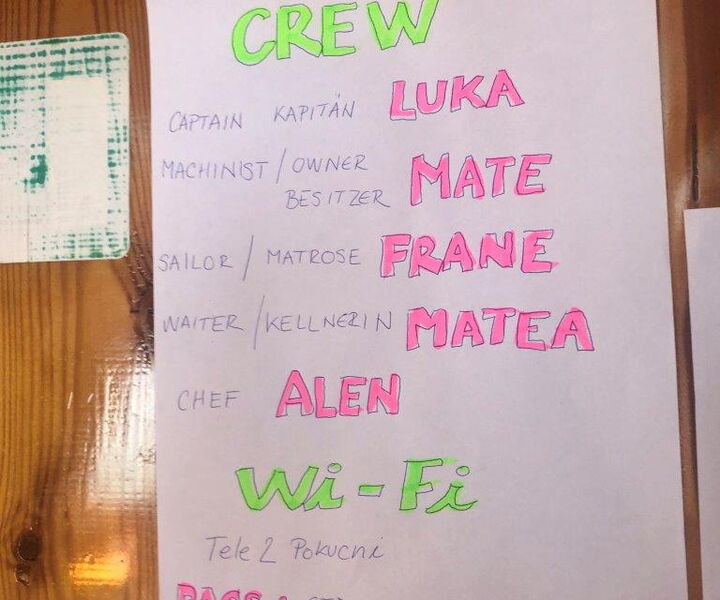 CREW
CAPTAIN KAPITÄN LUKA
MACHINIST / OWNER MATE
BESITZER
SAILOR / MATROSE FRANE
WAITER / KELLNERIN MATEA
CHEF ALEN
Wi-Fi
Tele2 Pokucni